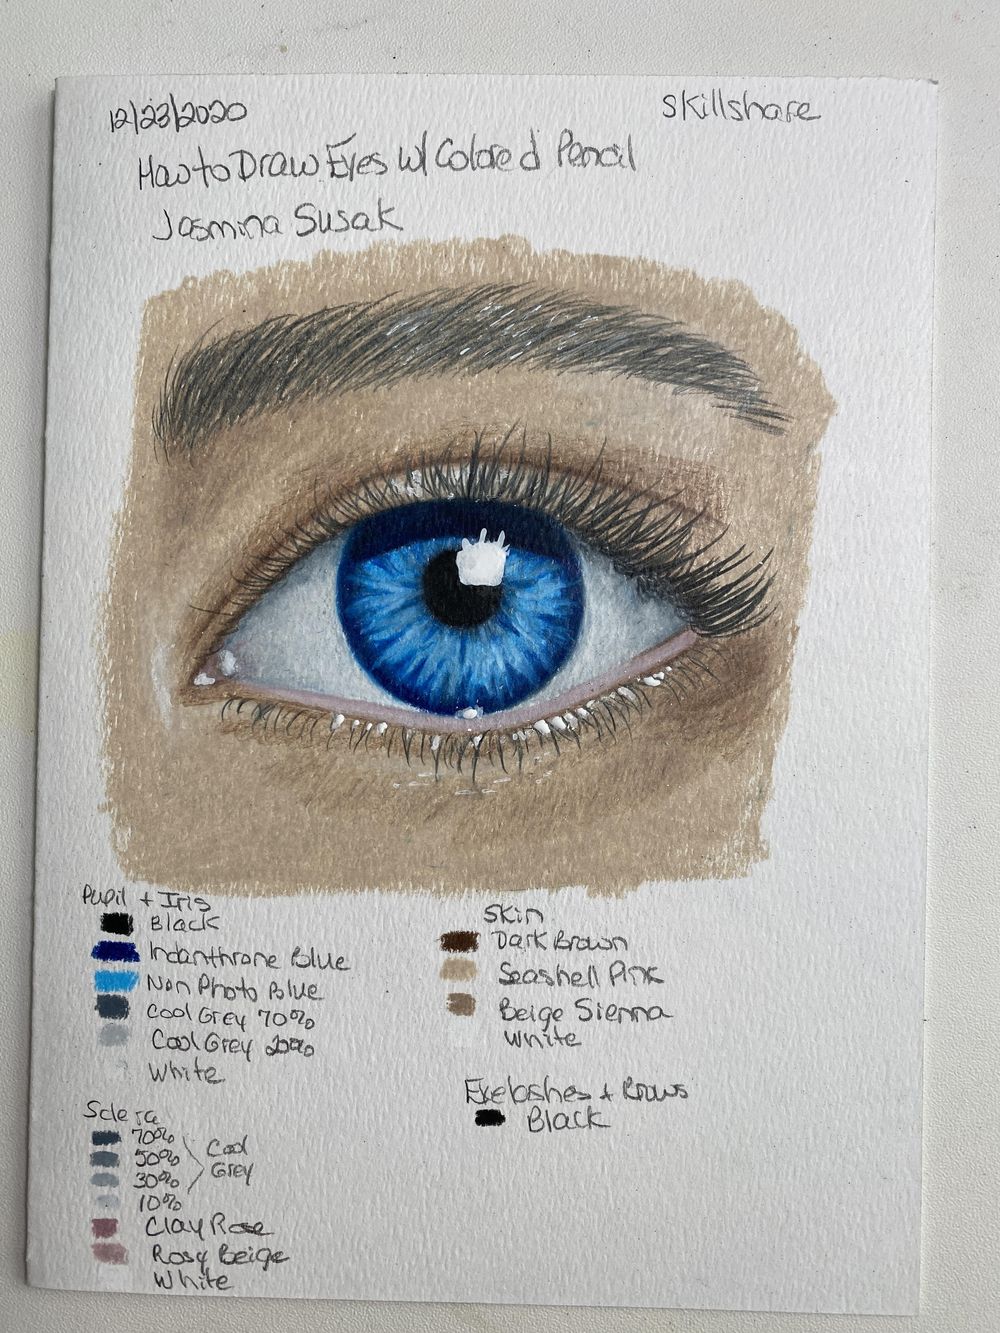 12/23/2020
Skillshare
How to Draw Eyes w/ Colored Pencil
Jasmina Susak
Pupil + Iris
Black
Indanthrone Blue
Non Photo Blue
Cool Grey 70%
Cool Grey 20%
White
Sclera
70%
50%
30%
10%
Cool
Grey
Clay Rose
Rosy Beige
White
Skin
Dark Brown
Seashell Pink
Beige Sienna
White
Eyelashes + Brows
Black